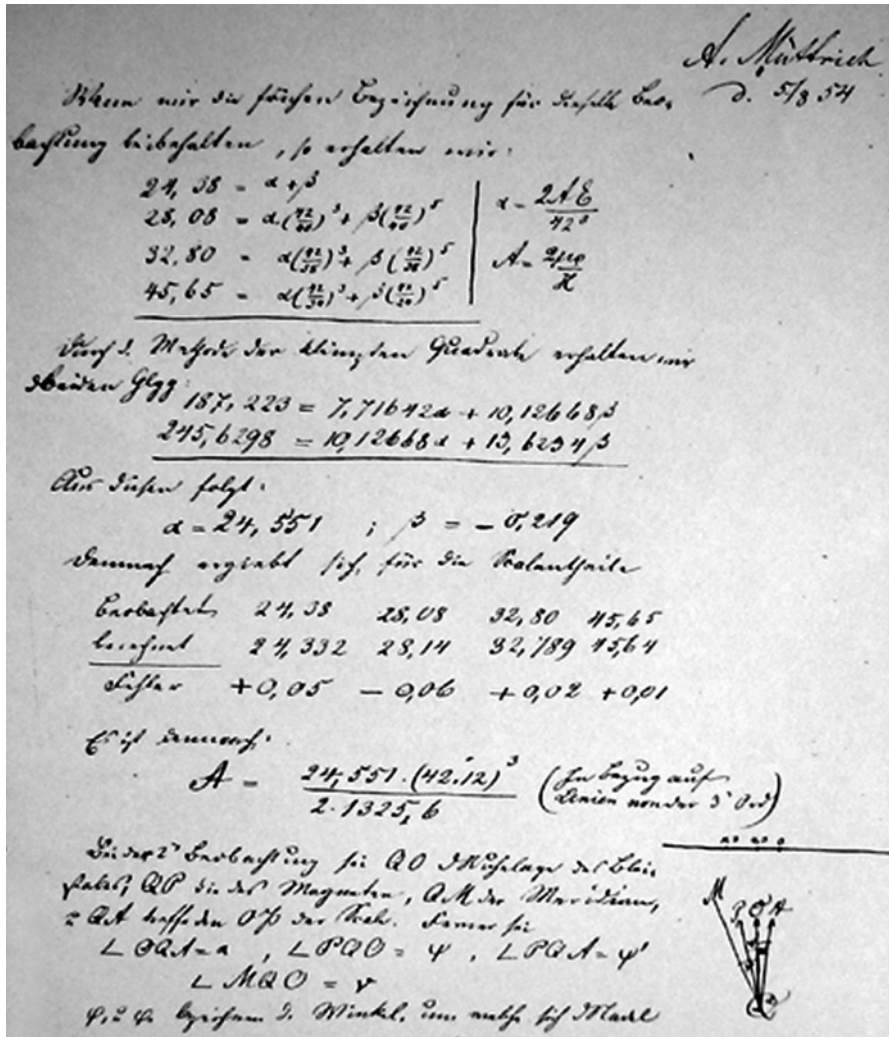 A. Müttrich
d. 5/8 54
Wenn wir die frühere Bezeichnung für dieselbe Beo-
bachtung beibehalten, so erhalten wir:
24,38 = α + β
28,08 = α(42/40)³ + β(42/40)⁵
32,80 = α(42/38)³ + β(42/38)⁵
45,65 =
α = 2AE/42³
A = 2μφ/H
Durch d. Methode der kleinsten Quadrate erhalten wir
d beiden Glgg:
187,223 = 7,71642α + 10,12668β
245,6298 = 10,12668α + 13,6234β
Aus diesen folgt:
α = 24,551 ; β = - 0,219
Demnach ergiebt sich, für die Scalentheile
beobachtet 24,38 28,08 32,80 45,65
berechnet 24,332 28,14 32,789 45,64
Fehler +0,05 - 0,06 + 0,02 +0,01
Es ist demnach:
A = 24,551.(42.12)³ / 2.1325,6 (In Bezug auf
Linien von der 3 Ord)
Bei der 2 Beobachtung sei QO d Ruhelage des
QP die des Magneten, QM der Meridian,
QA treffe den 0 P der Scale. Ferner sei
∠ OQA = a, ∠ PQO = φ, ∠ PQA = φ'
∠ MQO = ν
bezeichnen d. Winkel, um welche sich d Nadel
M P O A